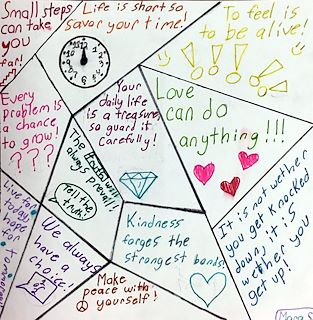 Small steps
can take
you
far!
Life is short so
savor your time!
To feel is
to be alive!
12
Every
problem is
a chance
to grow!
???
Your
daily life
is a treasure,
so guard it
carefully!
Love
can do
anything!!!
The
will
always prevail!
Tell the
truth!
Live for
today
hope
for
Tomorrow
We always
have a
choice!
Kindness
forges the
strongest bonds!
Make
peace with
yourself!
It is not wether
you get knocked
down, it is
wether you
get up!